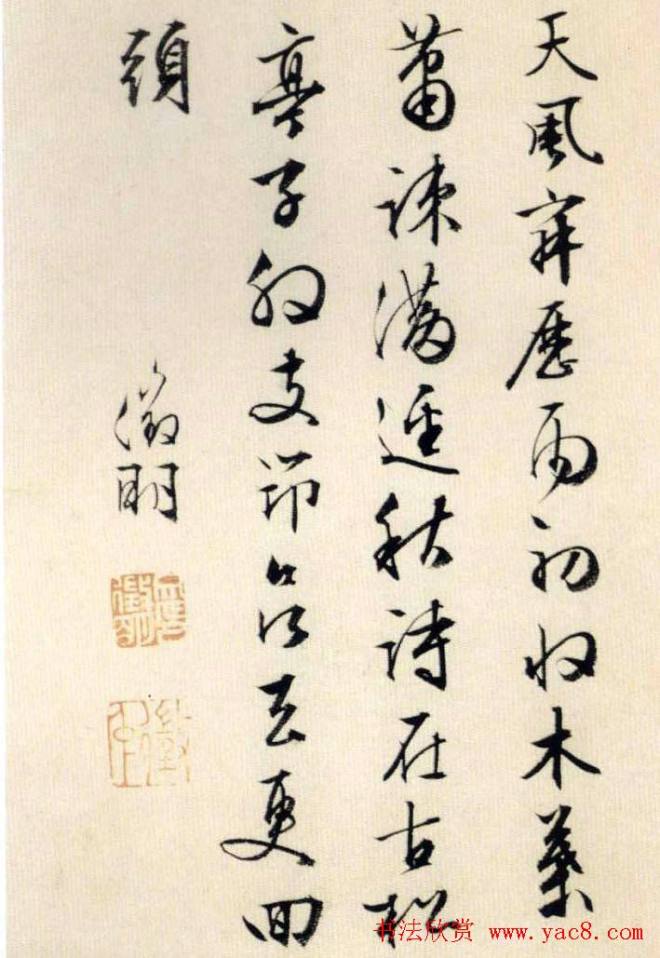 天風寂歷雨初收木葉
蕭疎滿逕秋詩在古松
亭子外支筇欲去更回
頭
徵明
书法欣赏 www.yac8.com